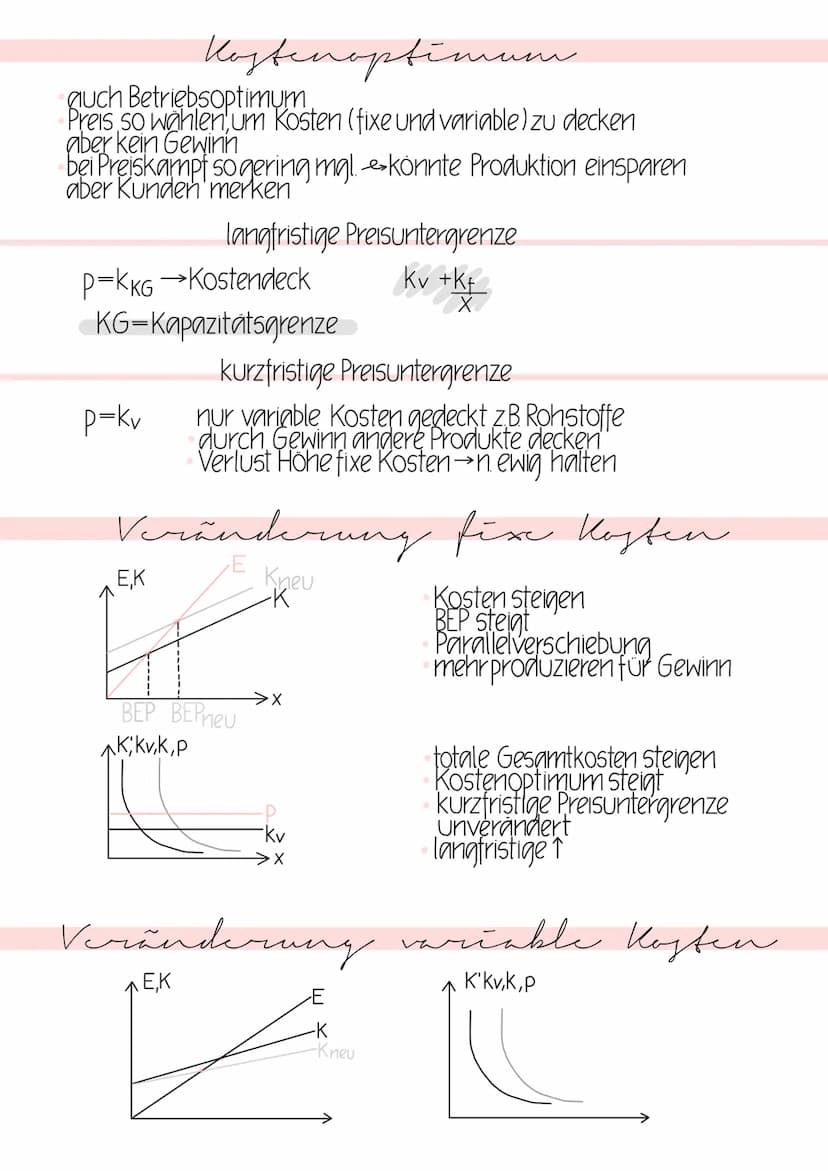 Kostenoptimum
auch Betriebsoptimum
Preis so wählen, um Kosten (fixe und variable) zu decken
aber kein Gewinn
bei Preiskampf so gering mgl. ↔ könnte Produktion einsparen
aber Kunden merken
langfristige Preisuntergrenze
p=kKG → Kostendeck
kv + kf/x
KG=Kapazitätsgrenze
kurzfristige Preisuntergrenze
p=kv
nur variable Kosten gedeckt z.B. Rohstoffe
durch Gewinn andere Produkte decken
Verlust Höhe fixe Kosten → n. ewig halten
Veränderung fixe Kosten
E,K
E
Kneu
K
x
BEP
BEPneu
Kosten steigen
BEP steigt
Parallelverschiebung
mehr produzieren für Gewinn
K',kv,k,p
P
kv
x
totale Gesamtkosten steigen
Kostenoptimum steigt
kurzfristige Preisuntergrenze
unverändert
langfristige ↑
Veränderung variable Kosten
E,K
E
K
Kneu
K'kv,k,p